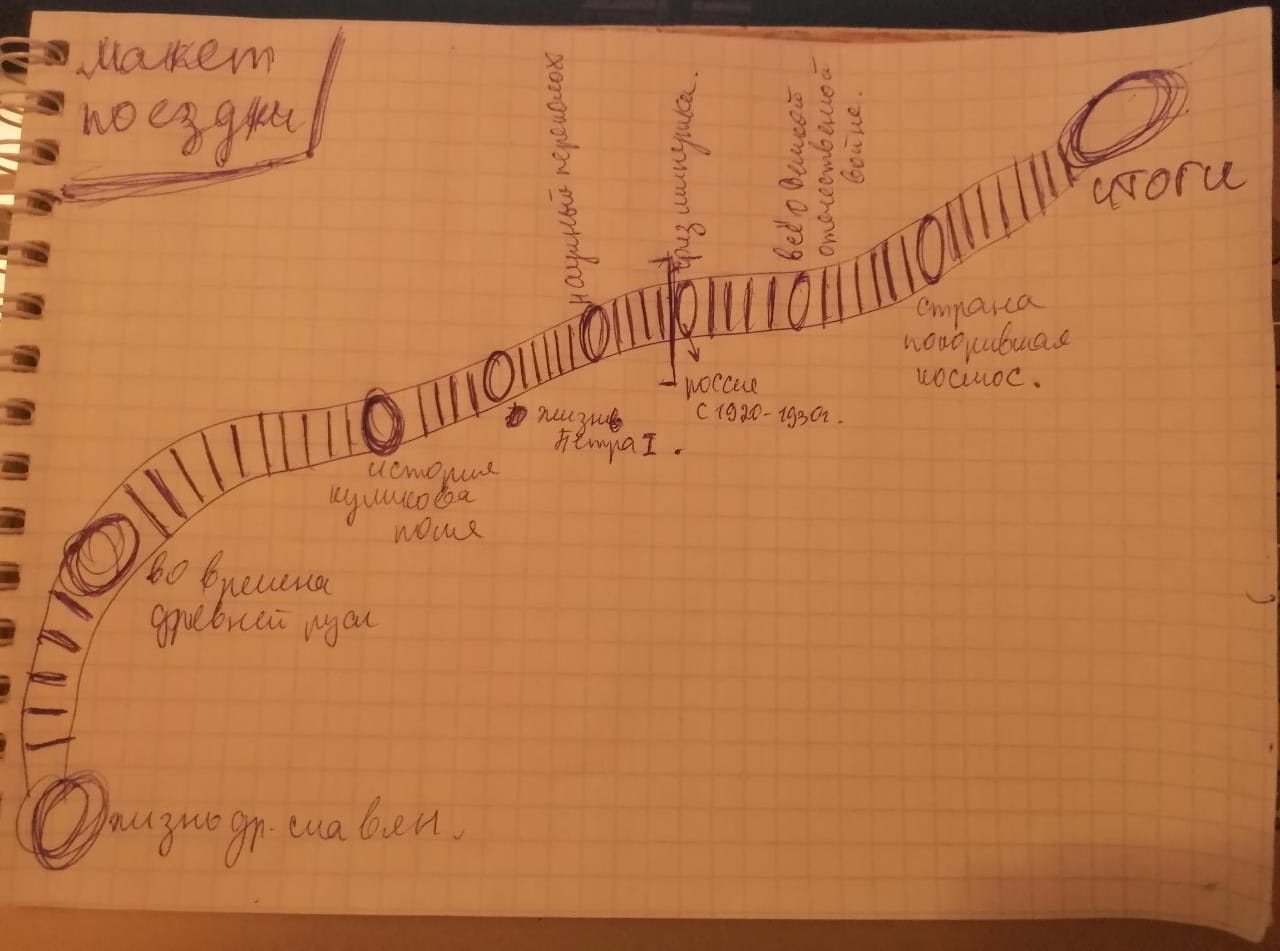 макет
поездки
научный переполох
физминутка.
всё о Великой
отечественной
войне.
итоги
страна
покорившая
космос.
россия
с 1920-1930г.
жизнь
Петра I.
история
куликова
поля
во времена
древней руси
жизнь др. славян.